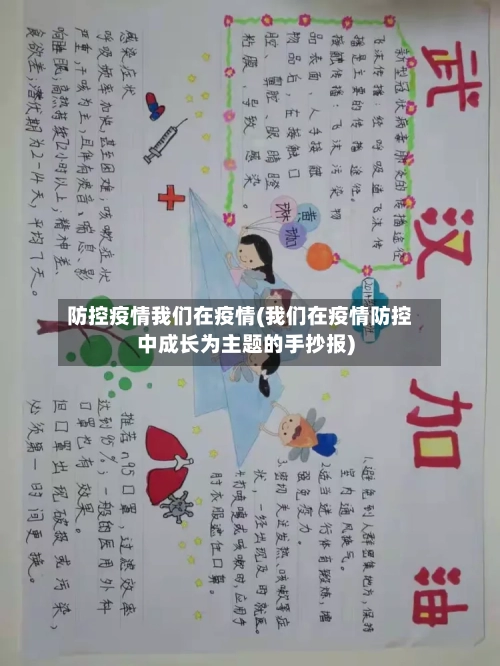 武汉加油
新型冠状病毒肺炎的传播途径
飞沫传播:经呼吸道飞沫传
播是主要的传播途径。
接触传播:飞沫污染物
品表面、人手接触
物品后,在接触口
腔、鼻腔、眼睛
粘膜,导致感染。
感染症状
呼吸频率加快,甚至困难;咳嗽症状
严重,干咳为主,且伴有痰音、喘息、影
响睡眠;高热持续72小时以上;精神差、
食欲差;潜伏期为2-14天,平均7天。
加油
防控疫情我们在疫情(我们在疫情防控
中成长为主题的手抄报)
1.避免到人群密集地方,保持
室内通风换气。
2.适当进行体育锻炼,增
强免疫力。
3.密切关注发热、咳嗽等症
状,一经出现及时就医。
4.打喷嚏或咳嗽时,应用手
肘衣服遮住口鼻。
推荐n95口罩,过滤效率
达到95%;一般的医用外科
口罩也有效果。
但口罩出现破损或污染,
必须第一时间更换。